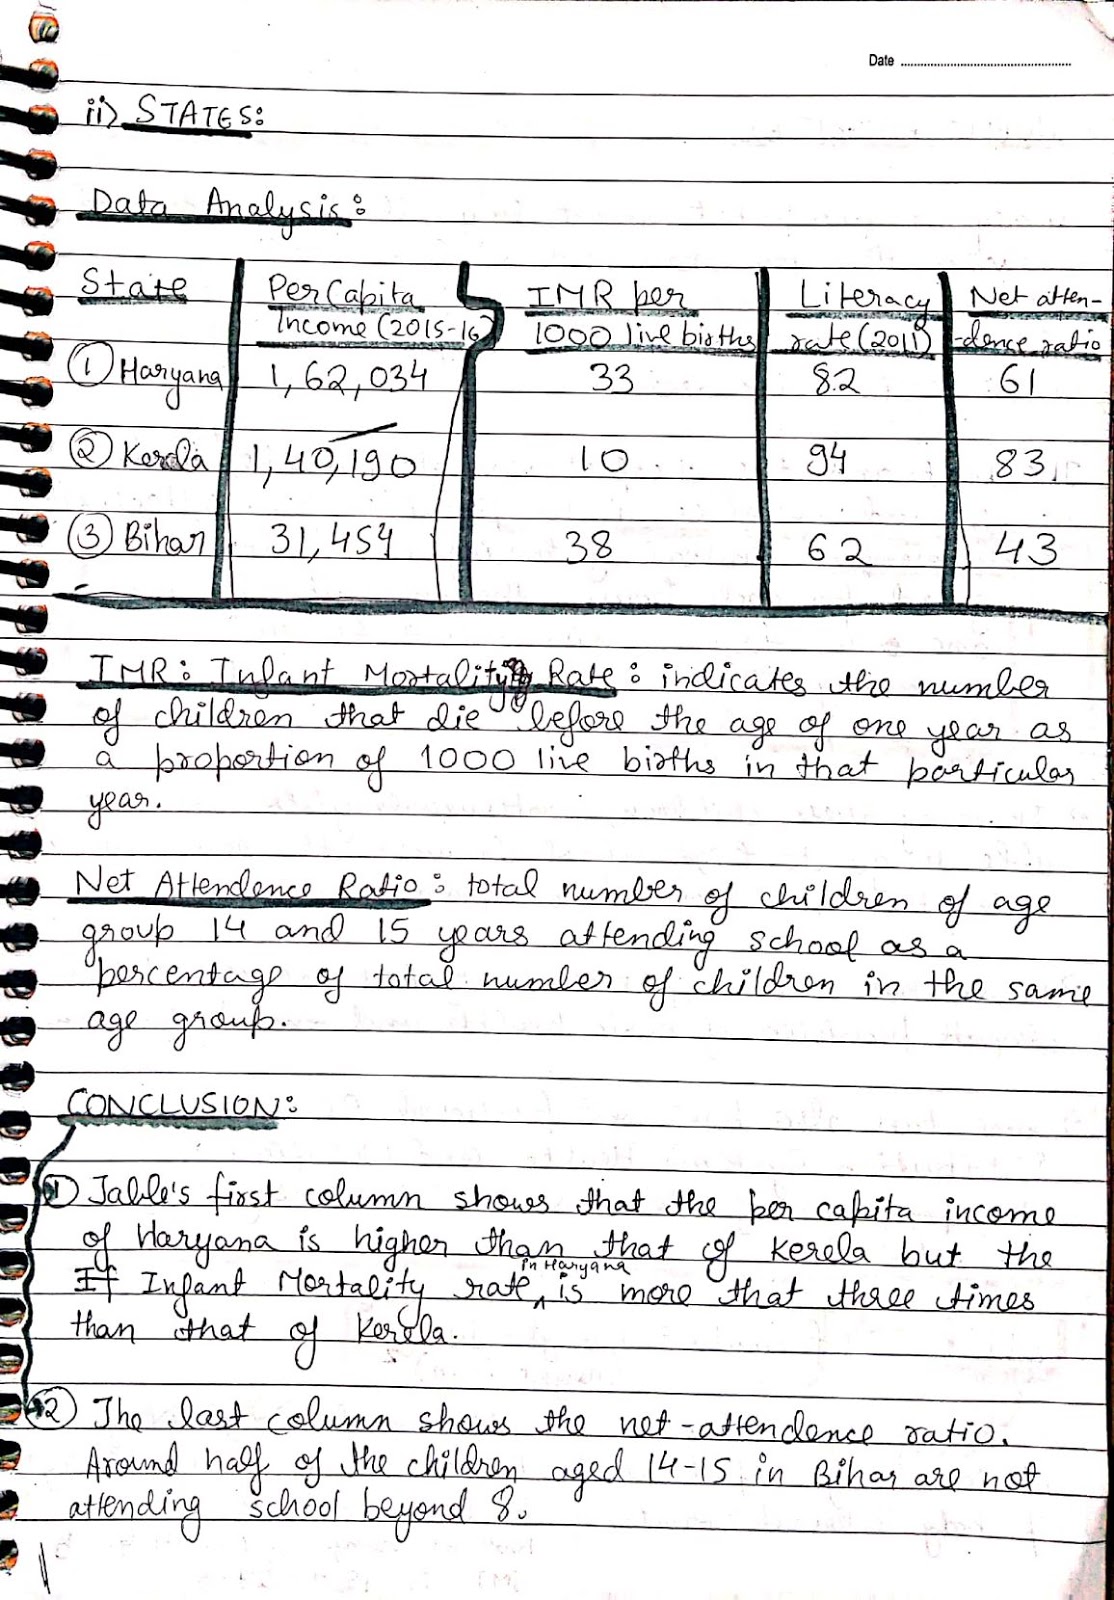 Date
ii) STATES:
Data Analysis:
State Per Capita Income (2015-16) IMR per 1000 live births Literacy rate (2011) Net atten-dence ratio
① Haryana 1,62,034 33 82 61
② Kerela 1,40,190 10 94 83
③ Bihar 31,454 38 62 43
IMR: Infant Mortality Rate: indicates the number
of children that die before the age of one year as
a proportion of 1000 live births in that particular
year.
Net Attendence Ratio: total number of children of age
group 14 and 15 years attending school as a
percentage of total number of children in the same
age group.
CONCLUSION:
① Table's first column shows that the per capita income
of Haryana is higher than that of Kerela but the
If Infant Mortality rate in Haryana is more that three times
than that of Kerela.
② The last column shows the net-attendence ratio.
Around half of the children aged 14-15 in Bihar are not
attending school beyond 8.